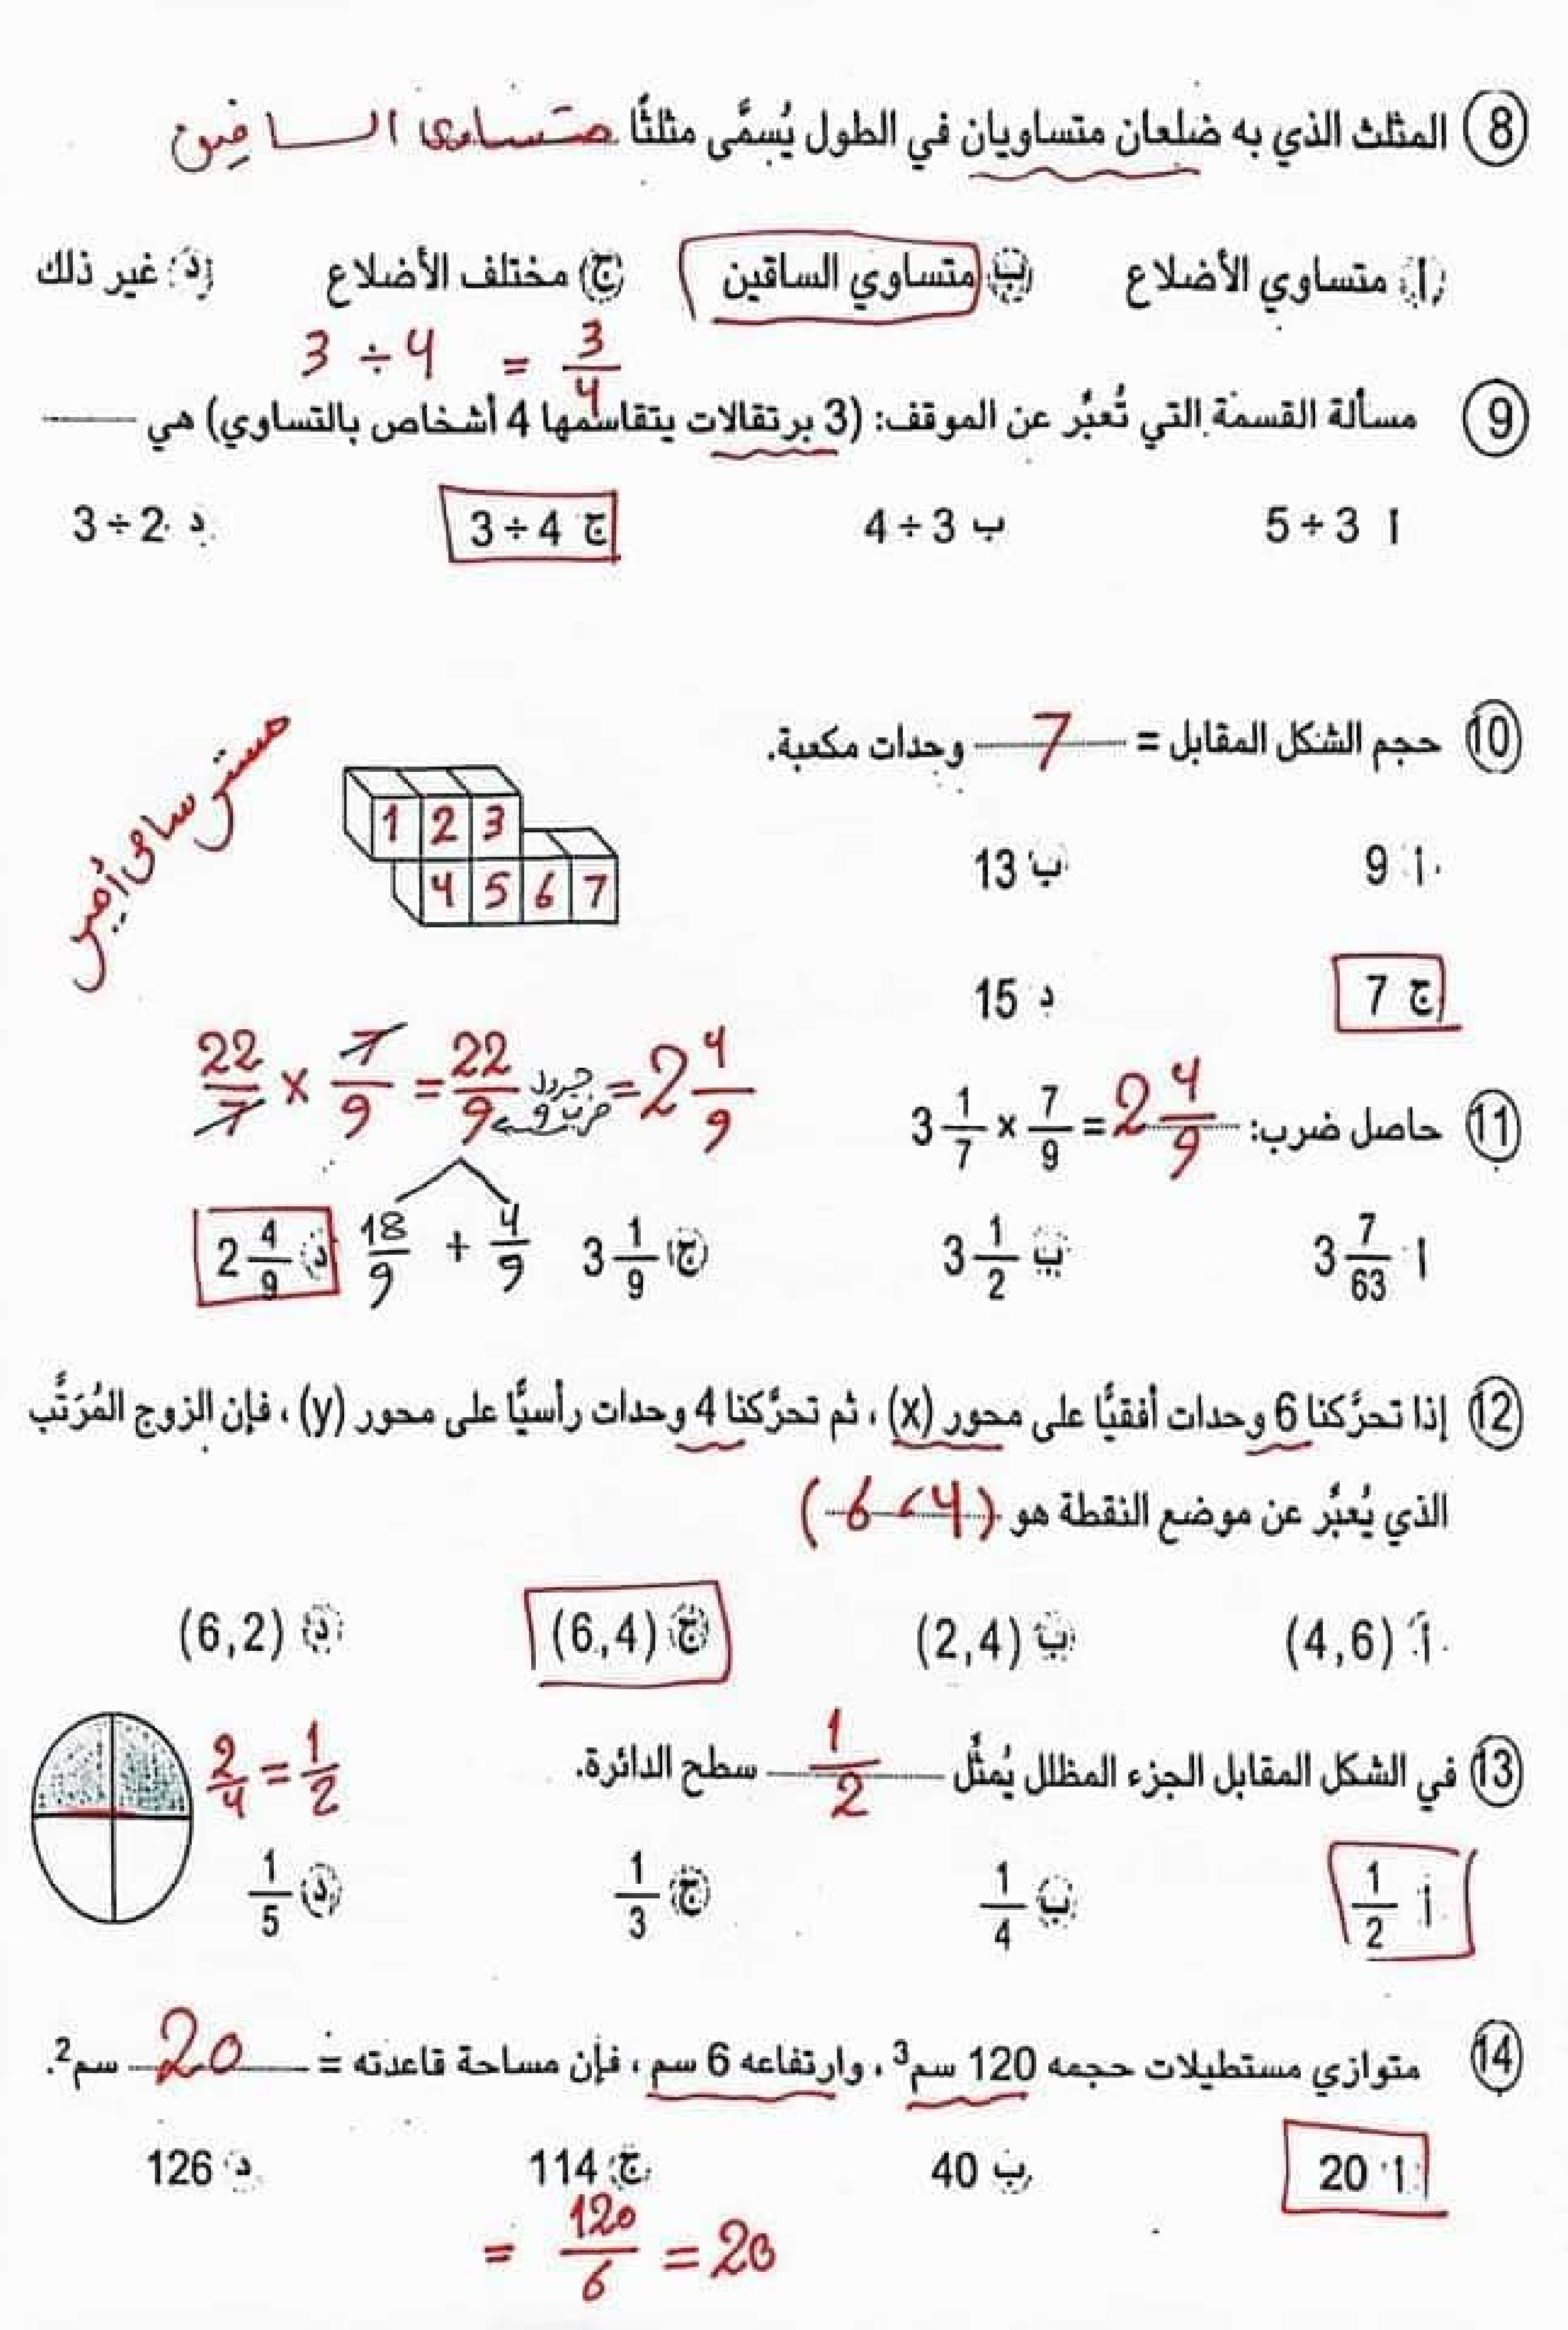 8 المثلث الذي به ضلعان متساويان في الطول يُسمَّى مثلثًا متساوى الساقين
أ متساوي الأضلاع ب متساوي الساقين ج مختلف الأضلاع د غير ذلك
3 ÷ 4 = 3/4
9 مسألة القسمة التي تُعبِّر عن الموقف: (3 برتقالات يتقاسمها 4 أشخاص بالتساوي) هي
أ 5 ÷ 3 ب 4 ÷ 3 ج 3 ÷ 4 د 3 ÷ 2
10 حجم الشكل المقابل = 7 وحدات مكعبة.
1 2 3
4 5 6 7
أ 9 ب 13
ج 7 د 15
22/7 × 7/9 = 22/9 = 2 4/9
جدول ضرب 9
11 حاصل ضرب: 3 1/7 × 7/9 = 2 4/9
18/9 + 4/9
أ 3 7/63 ب 3 1/2 ج 3 1/9 د 2 4/9
12 إذا تحرَّكنا 6 وحدات أفقيًّا على محور (x) ، ثم تحرَّكنا 4 وحدات رأسيًّا على محور (y) ، فإن الزوج المُرَتَّب
الذي يُعبِّر عن موضع النقطة هو (6، 4)
أ (4,6) ب (2,4) ج (6,4) د (6,2)
13 في الشكل المقابل الجزء المظلل يُمثِّل 1/2 سطح الدائرة.
2/4 = 1/2
أ 1/2 ب 1/4 ج 1/3 د 1/5
14 متوازي مستطيلات حجمه 120 سم³ ، وارتفاعه 6 سم ، فإن مساحة قاعدته = 20 سم².
أ 20 ب 40 ج 114 د 126
= 120/6 = 20